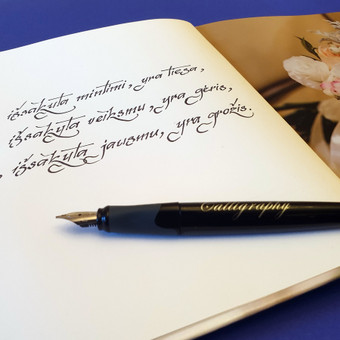 išsakyta mintimi, yra tiesa,
išsakyta veiksmu, yra gėris,
išsakyta jausmu, yra grožis.
Calligraphy